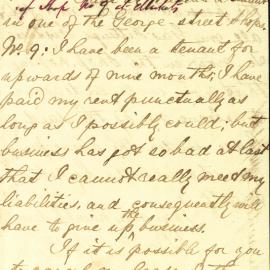 of Shop No 9 of
in one of the George-street shops.
No. 9; I have been a tenant for
upwards of nine months; I have
paid my rent punctually as
long as I possibly could; but
business has got so bad at last
that I cannot really meet my
liabilities, and consequently will
have to give up the business.
If it is possible for you